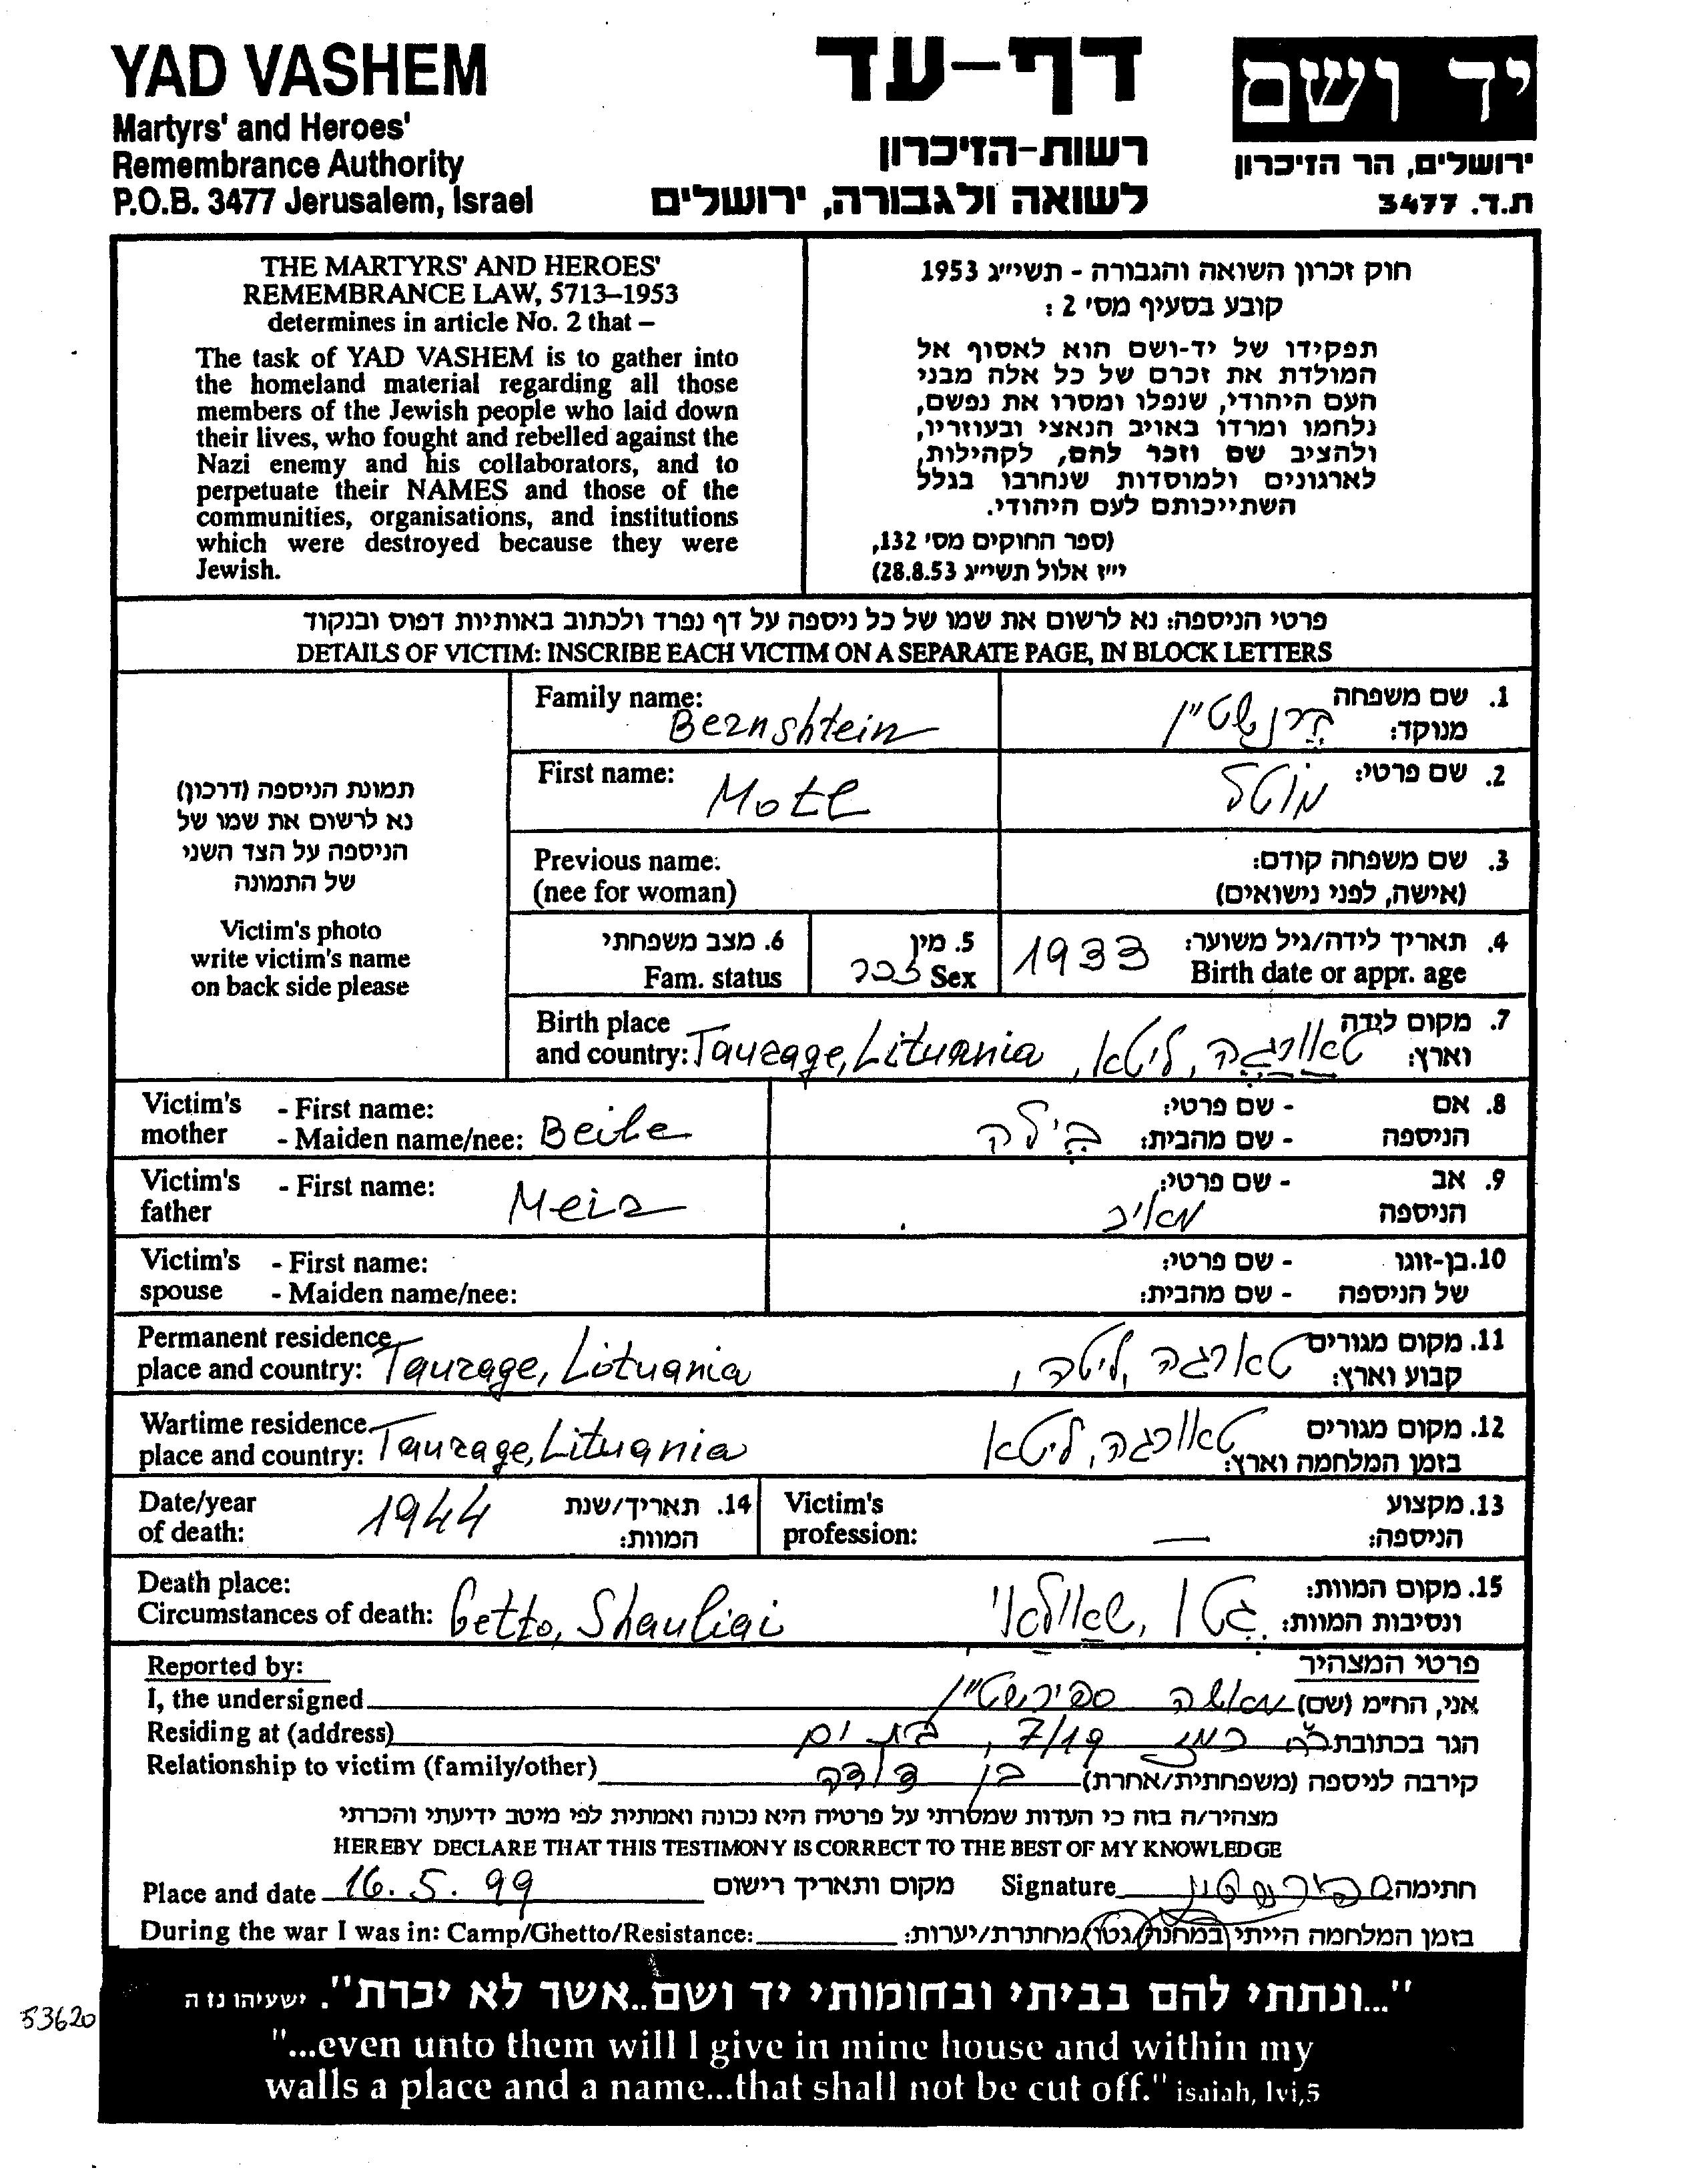 YAD VASHEM
Martyrs' and Heroes'
Remembrance Authority
P.O.B. 3477 Jerusalem, Israel
דף-עד
רשות-הזיכרון
לשואה ולגבורה, ירושלים
יד ושם
ירושלים, הר הזיכרון
ת.ד. 3477
THE MARTYRS' AND HEROES'
REMEMBRANCE LAW, 5713–1953
determines in article No. 2 that –
The task of YAD VASHEM is to gather into
the homeland material regarding all those
members of the Jewish people who laid down
their lives, who fought and rebelled against the
Nazi enemy and his collaborators, and to
perpetuate their NAMES and those of the
communities, organisations, and institutions
which were destroyed because they were
Jewish.
חוק זכרון השואה והגבורה - תשי״ג 1953
קובע בסעיף מס׳ 2 :
תפקידו של יד-ושם הוא לאסוף אל
המולדת את זכרם של כל אלה מבני
העם היהודי, שנפלו ומסרו את נפשם,
נלחמו ומרדו באויב הנאצי ובעוזריו,
ולהציב שם וזכר להם, לקהילות,
לארגונים ולמוסדות שנחרבו בגלל
השתייכותם לעם היהודי.
(ספר החוקים מס׳ 132,
י״ז אלול תשי״ג 28.8.53)
פרטי הניספה: נא לרשום את שמו של כל ניספה על דף נפרד ולכתוב באותיות דפוס ובנקוד
DETAILS OF VICTIM: INSCRIBE EACH VICTIM ON A SEPARATE PAGE, IN BLOCK LETTERS
תמונת הניספה (דרכון)
נא לרשום את שמו של
הניספה על הצד השני
של התמונה
Victim's photo
write victim's name
on back side please
Family name: Bernshtein
1. שם משפחה
מנוקד: ברנשטיין
First name: Motl
2. שם פרטי: מוטל
Previous name:
(nee for woman)
3. שם משפחה קודם:
(אישה, לפני נישואים)
6. מצב משפחתי
Fam. status
5. מין
Sex זכר
4. תאריך לידה/גיל משוער:
Birth date or appr. age 1933
Birth place
and country: Taurage, Lituania
7. מקום לידה
וארץ: טאורגה, ליטא,
Victim's mother - First name:
- Maiden name/nee: Beile
8. אם הניספה - שם פרטי:
- שם מהבית: ביילה
Victim's father - First name: Meir
9. אב הניספה - שם פרטי: מאיר
Victim's spouse - First name:
- Maiden name/nee:
10. בן-זוגו של הניספה - שם פרטי:
- שם מהבית:
Permanent residence
place and country: Taurage, Lituania
11. מקום מגורים
קבוע וארץ: טאורגה, ליטה,
Wartime residence
place and country: Taurage, Lituania
12. מקום מגורים
בזמן המלחמה וארץ: טאורגה, ליטא
Date/year
of death: 1944
14. תאריך/שנת
המוות:
Victim's
profession:
13. מקצוע
הניספה: —
Death place:
Circumstances of death: Getto, Shauliai
15. מקום המוות:
ונסיבות המוות: גטו, שאוליאי
Reported by:
פרטי המצהיר
I, the undersigned
אני, הח״מ (שם) משה ספירשטיין
Residing at (address)
הגר בכתובת 7/19, בת ים
Relationship to victim (family/other)
קירבה לניספה (משפחתית/אחרת) בן דודה
מצהיר/ה בזה כי העדות שמסרתי על פרטיה היא נכונה ואמתית לפי מיטב ידיעתי והכרתי
HEREBY DECLARE THAT THIS TESTIMONY IS CORRECT TO THE BEST OF MY KNOWLEDGE
Place and date 16.5.99 מקום ותאריך רישום
Signature חתימה
During the war I was in: Camp/Ghetto/Resistance:
בזמן המלחמה הייתי במחנה/גטו/מחתרת/יערות:
"...ונתתי להם בביתי ובחומותי יד ושם..אשר לא יכרת". ישעיהו נו ה
"...even unto them will I give in mine house and within my
walls a place and a name...that shall not be cut off." isaiah, lvi,5
53620